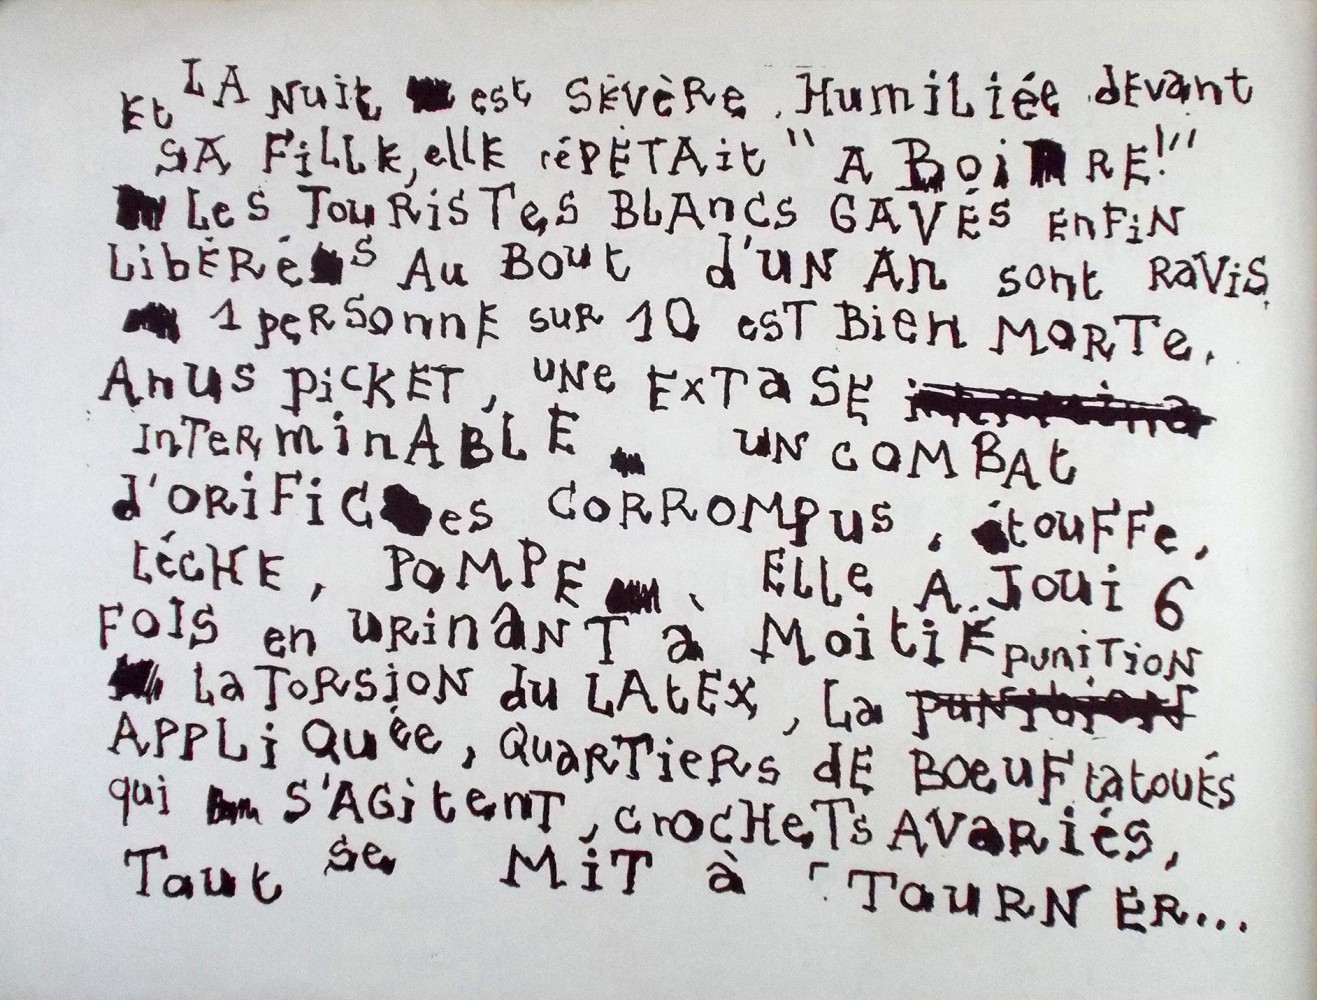 Et LA Nuit est SÉVÈRE. HumiLiée dEvant
SA FiLLE, ellE réPÉTAit "A BoiRE!"
Les TouRisTes BLAncs GAVÉS EnFiN
LibÉRés Au Bout d'uN An sont RaViS
1 peRSonnE suR 10 esT BiEn MORTe.
Anus PiCKET, uNe ExTaSE intermina
InTeRminABLE. uN COMBAt
d'ORiFiCes CORROMPus, étouFFe,
LéCHE, POMPE. Elle A Joui 6
FOIS en URinaNT a MoitiÉ PuniTioN
La ToRSioN du LAtEx, La puNitioN
APPLiQuée, QuaRTieRs dE BoeuF tatouÉs
qui S'AGitenT, crocHeTs AVaRiés,
Tout se MiT à TouRNER...